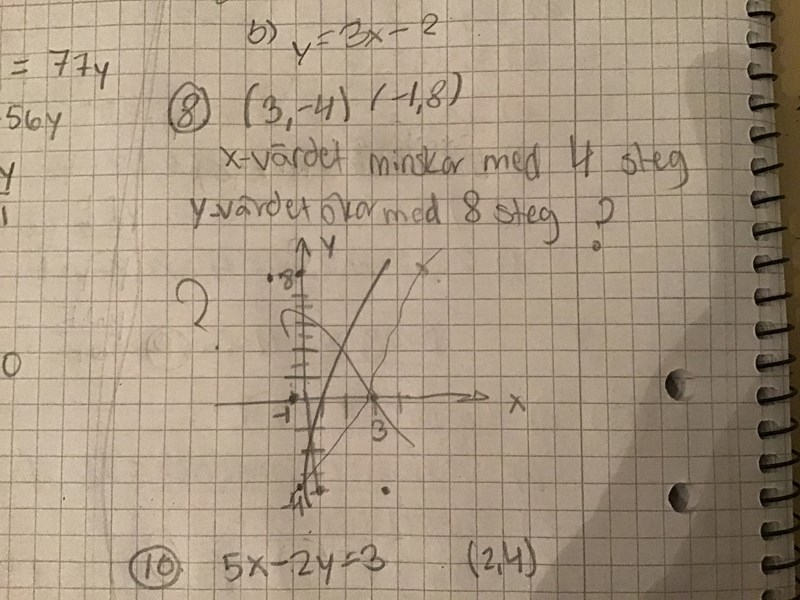 b) y = 3x - 2
= 77y
56y
y
1
⑧ (3,-4) (-1,8)
x-värdet minskar med 4 steg
y-värdet ökar med 8 steg ?
y
8
?
0
x
-1
3
-4
⑩ 5x-2y=3 (2,4)